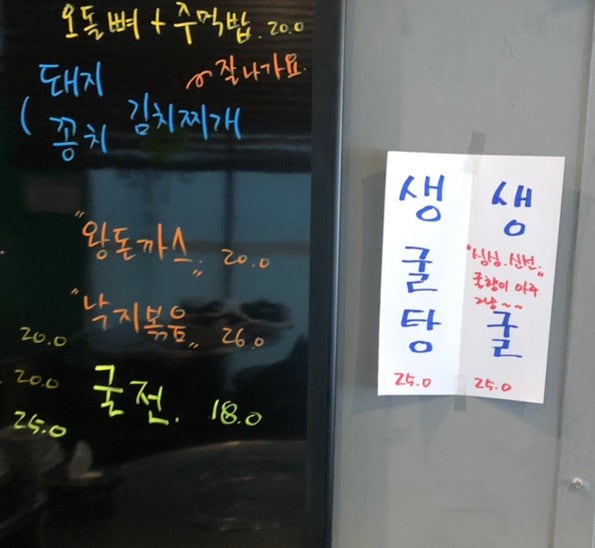 오돌뼈 + 주먹밥. 20.0
돼지
잘나가요
( 꽁치 김치찌개
"왕돈까스" 20.0
"낙지볶음" 26.0
20.0
20.0
굴전. 18.0
25.0
생굴탕
25.0
생굴
"싱싱.신선"
굴향이 아주
25.0